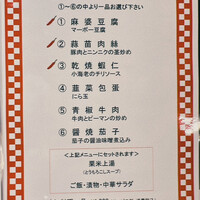 ①～⑥の中より一品お選び下さい
① 麻婆豆腐
マーボー豆腐
② 蒜苗肉絲
豚肉とニンニクの茎炒め
③ 乾焼蝦仁
小海老のチリソース
④ 韮菜包蛋
にら玉
⑤ 青椒牛肉
牛肉とピーマンの炒め
⑥ 醤焼茄子
茄子の醤油味噌煮込み
＜上記メニューにセットされます＞
粟米上湯
(とうもろこしスープ)
ご飯・漬物・中華サラダ